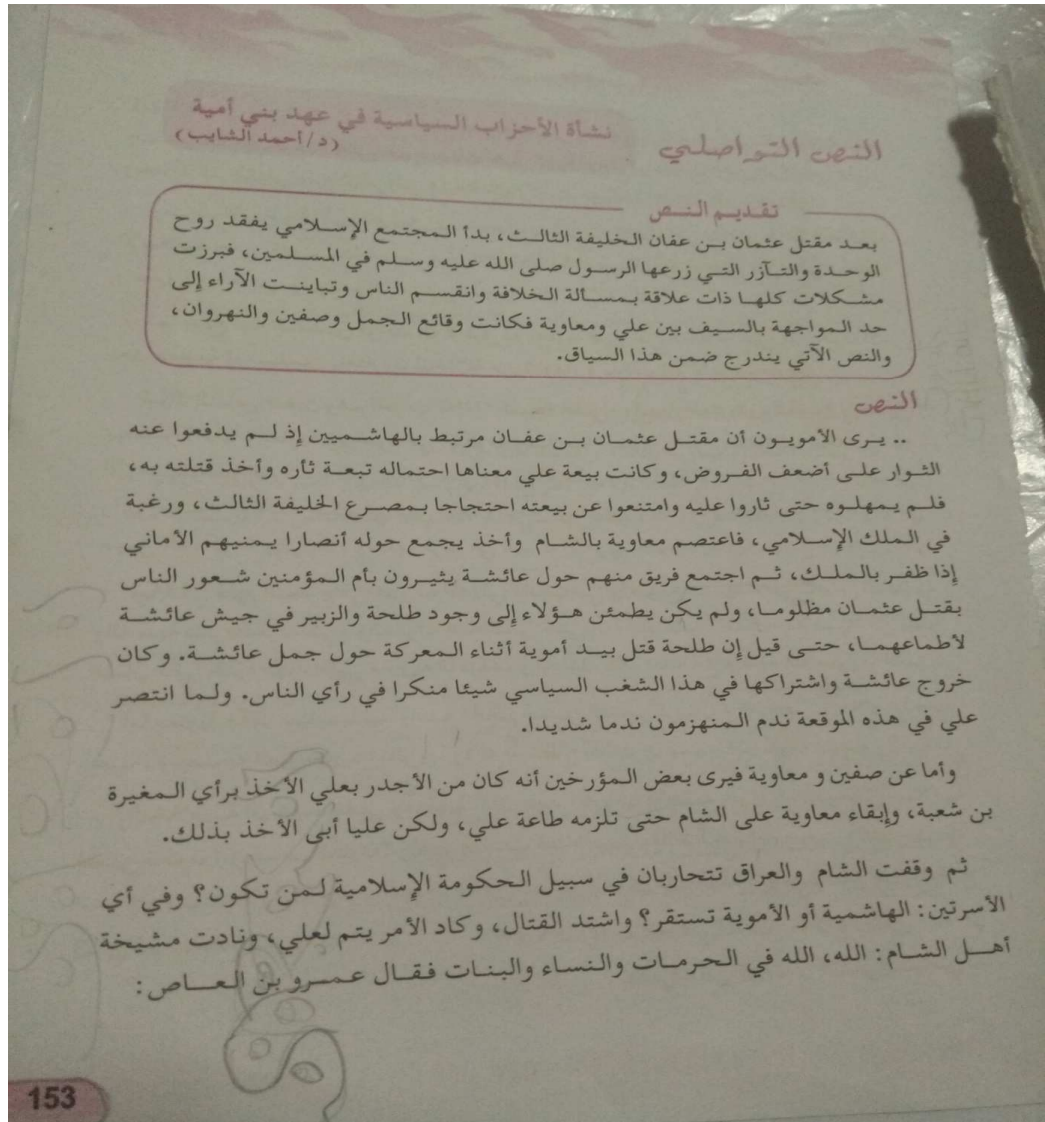 النص التواصلي
نشأة الأحزاب السياسية في عهد بني أمية
(د/أحمد الشايب)
تقديم النص
بعد مقتل عثمان بن عفان الخليفة الثالث، بدأ المجتمع الإسلامي يفقد روح
الوحدة والتآزر التي زرعها الرسول صلى الله عليه وسلم في المسلمين، فبرزت
مشكلات كلها ذات علاقة بمسالة الخلافة وانقسم الناس وتباينت الآراء إلى
حد المواجهة بالسيف بين علي ومعاوية فكانت وقائع الجمل وصفين والنهروان،
والنص الآتي يندرج ضمن هذا السياق.
النص
.. يرى الأمويون أن مقتل عثمان بن عفان مرتبط بالهاشميين إذ لم يدفعوا عنه
الثوار على أضعف الفروض، وكانت بيعة علي معناها احتماله تبعة ثأره وأخذ قتلته به،
فلم يمهلوه حتى ثاروا عليه وامتنعوا عن بيعته احتجاجا بمصرع الخليفة الثالث، ورغبة
في الملك الإسلامي، فاعتصم معاوية بالشام وأخذ يجمع حوله أنصارا يمنيهم الأماني
إذا ظفر بالملك، ثم اجتمع فريق منهم حول عائشة يثيرون بأم المؤمنين شعور الناس
بقتل عثمان مظلوما، ولم يكن يطمئن هؤلاء إلى وجود طلحة والزبير في جيش عائشة
لأطماعهما، حتى قيل إن طلحة قتل بيد أموية أثناء المعركة حول جمل عائشة. وكان
خروج عائشة واشتراكها في هذا الشغب السياسي شيئا منكرا في رأي الناس. ولما انتصر
علي في هذه الموقعة ندم المنهزمون ندما شديدا.
وأما عن صفين و معاوية فيرى بعض المؤرخين أنه كان من الأجدر بعلي الأخذ برأي المغيرة
بن شعبة، وإبقاء معاوية على الشام حتى تلزمه طاعة علي، ولكن عليا أبى الأخذ بذلك.
ثم وقفت الشام والعراق تتحاربان في سبيل الحكومة الإسلامية لمن تكون؟ وفي أي
الأسرتين: الهاشمية أو الأموية تستقر؟ واشتد القتال، وكاد الأمر يتم لعلي، ونادت مشيخة
أهل الشام: الله، الله في الحرمات والنساء والبنات فقال عمرو بن العاص:
153